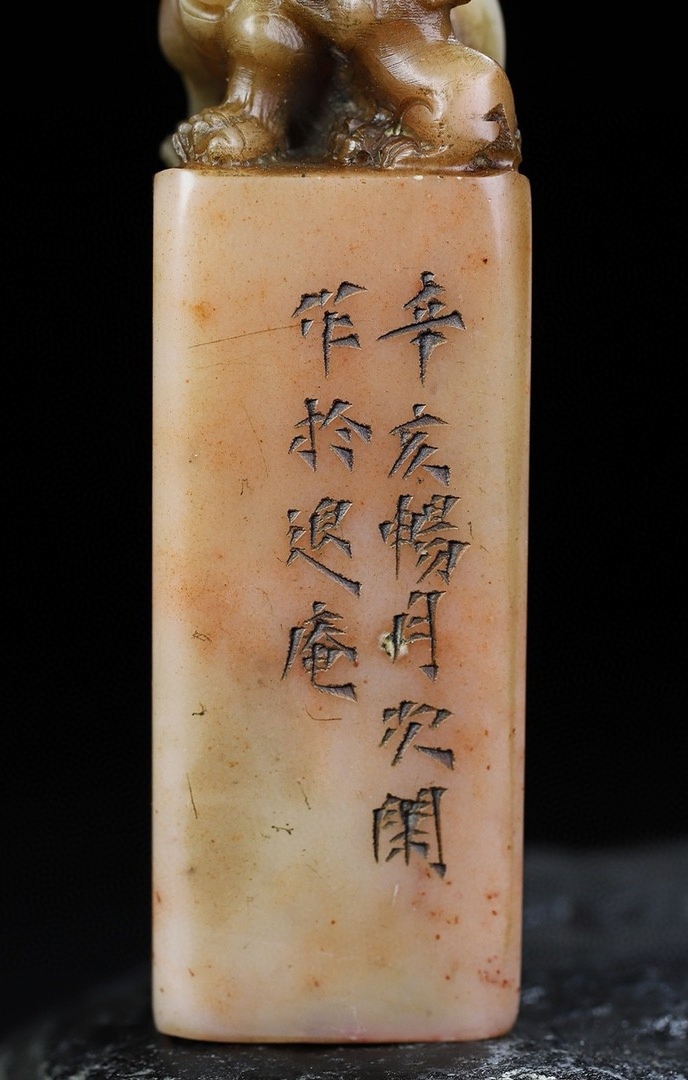 辛亥暢月次閑
作扵退庵